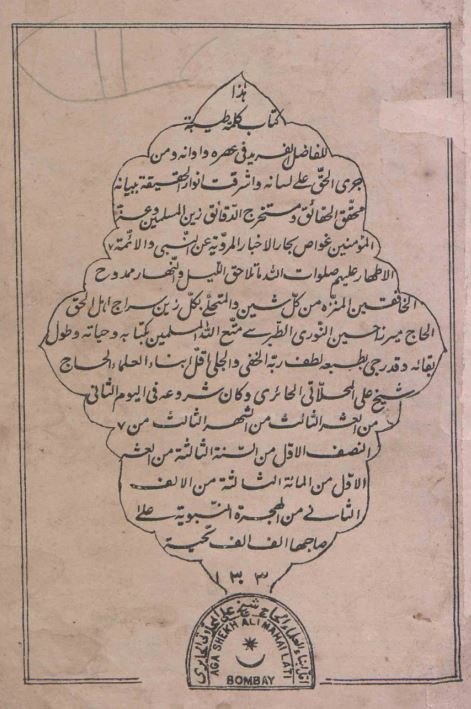 هذا
کتاب کلمه طیبة
للفاضل الفرید فی عصره و اوانه و من
جری الحق علی لسانه و اشرقت انوار الحقیقة ببیانه
محقق الحقائق و مستخرج الدقائق زین المسلمین و عدة
المؤمنین غواص بحار الاخبار المرویة عن النبی و الائمة
الاطهار علیهم صلوات الله ما تلاحق اللیل و النهار ممدوح
الخافقین المنزه من کل شین و المتحلی بکل زین سراج اهل الحق
الحاج میرزا حسین النوری الطبرسی متع الله المسلمین بکتابه و حیاته و طول
بقائه و قد رجی بطبعه لطف ربه الخفی و الجلی اقل ابناء العلماء الحاج
شیخ علی المحلاتی الحائری و کان شروعه فی الیوم الثانی
من العشر الثالث من الشهر الثالث من
النصف الاول من السنة الثالثة من العشر
الاول من المائة الثالثة من الالف
الثانی من الهجرة النبویة علی
صاحبها الف الف تحیة
۱۳۰۳
اقل ابناء العلماء الحاج شیخ علی المحلاتی الحایری
AGA SHEKH ALI MAHALLATI
BOMBAY